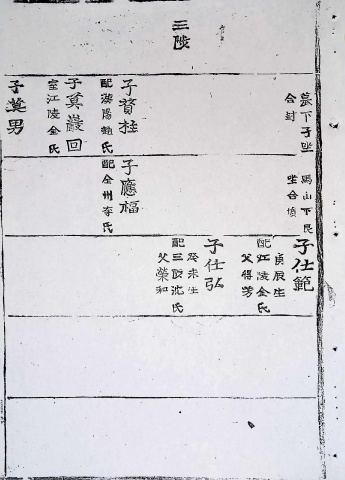 三陟
墓下子坐
合封
子贊柱
配漢陽趙氏
子莫巖回
室江陵金氏
子莫男
馬山下艮
坐合墳
子應福
配全州李氏
子仕範
庚辰生
配江陵金氏
父得芳
子仕弘
癸未生
配三陟沈氏
父榮和